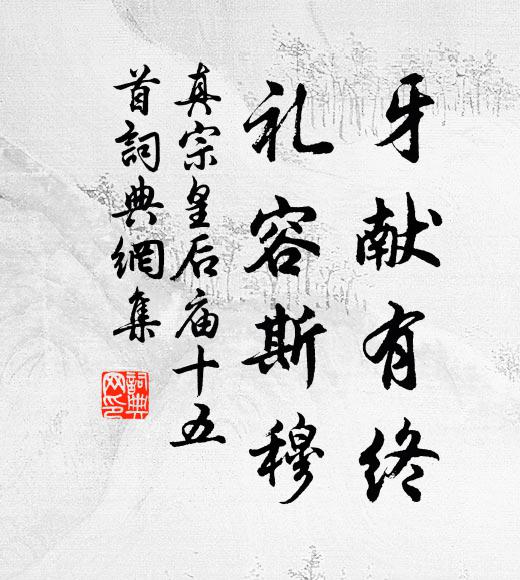 牙献有终
礼容斯穆
真宗皇后庙十五
首詞典網集
詞典
网印